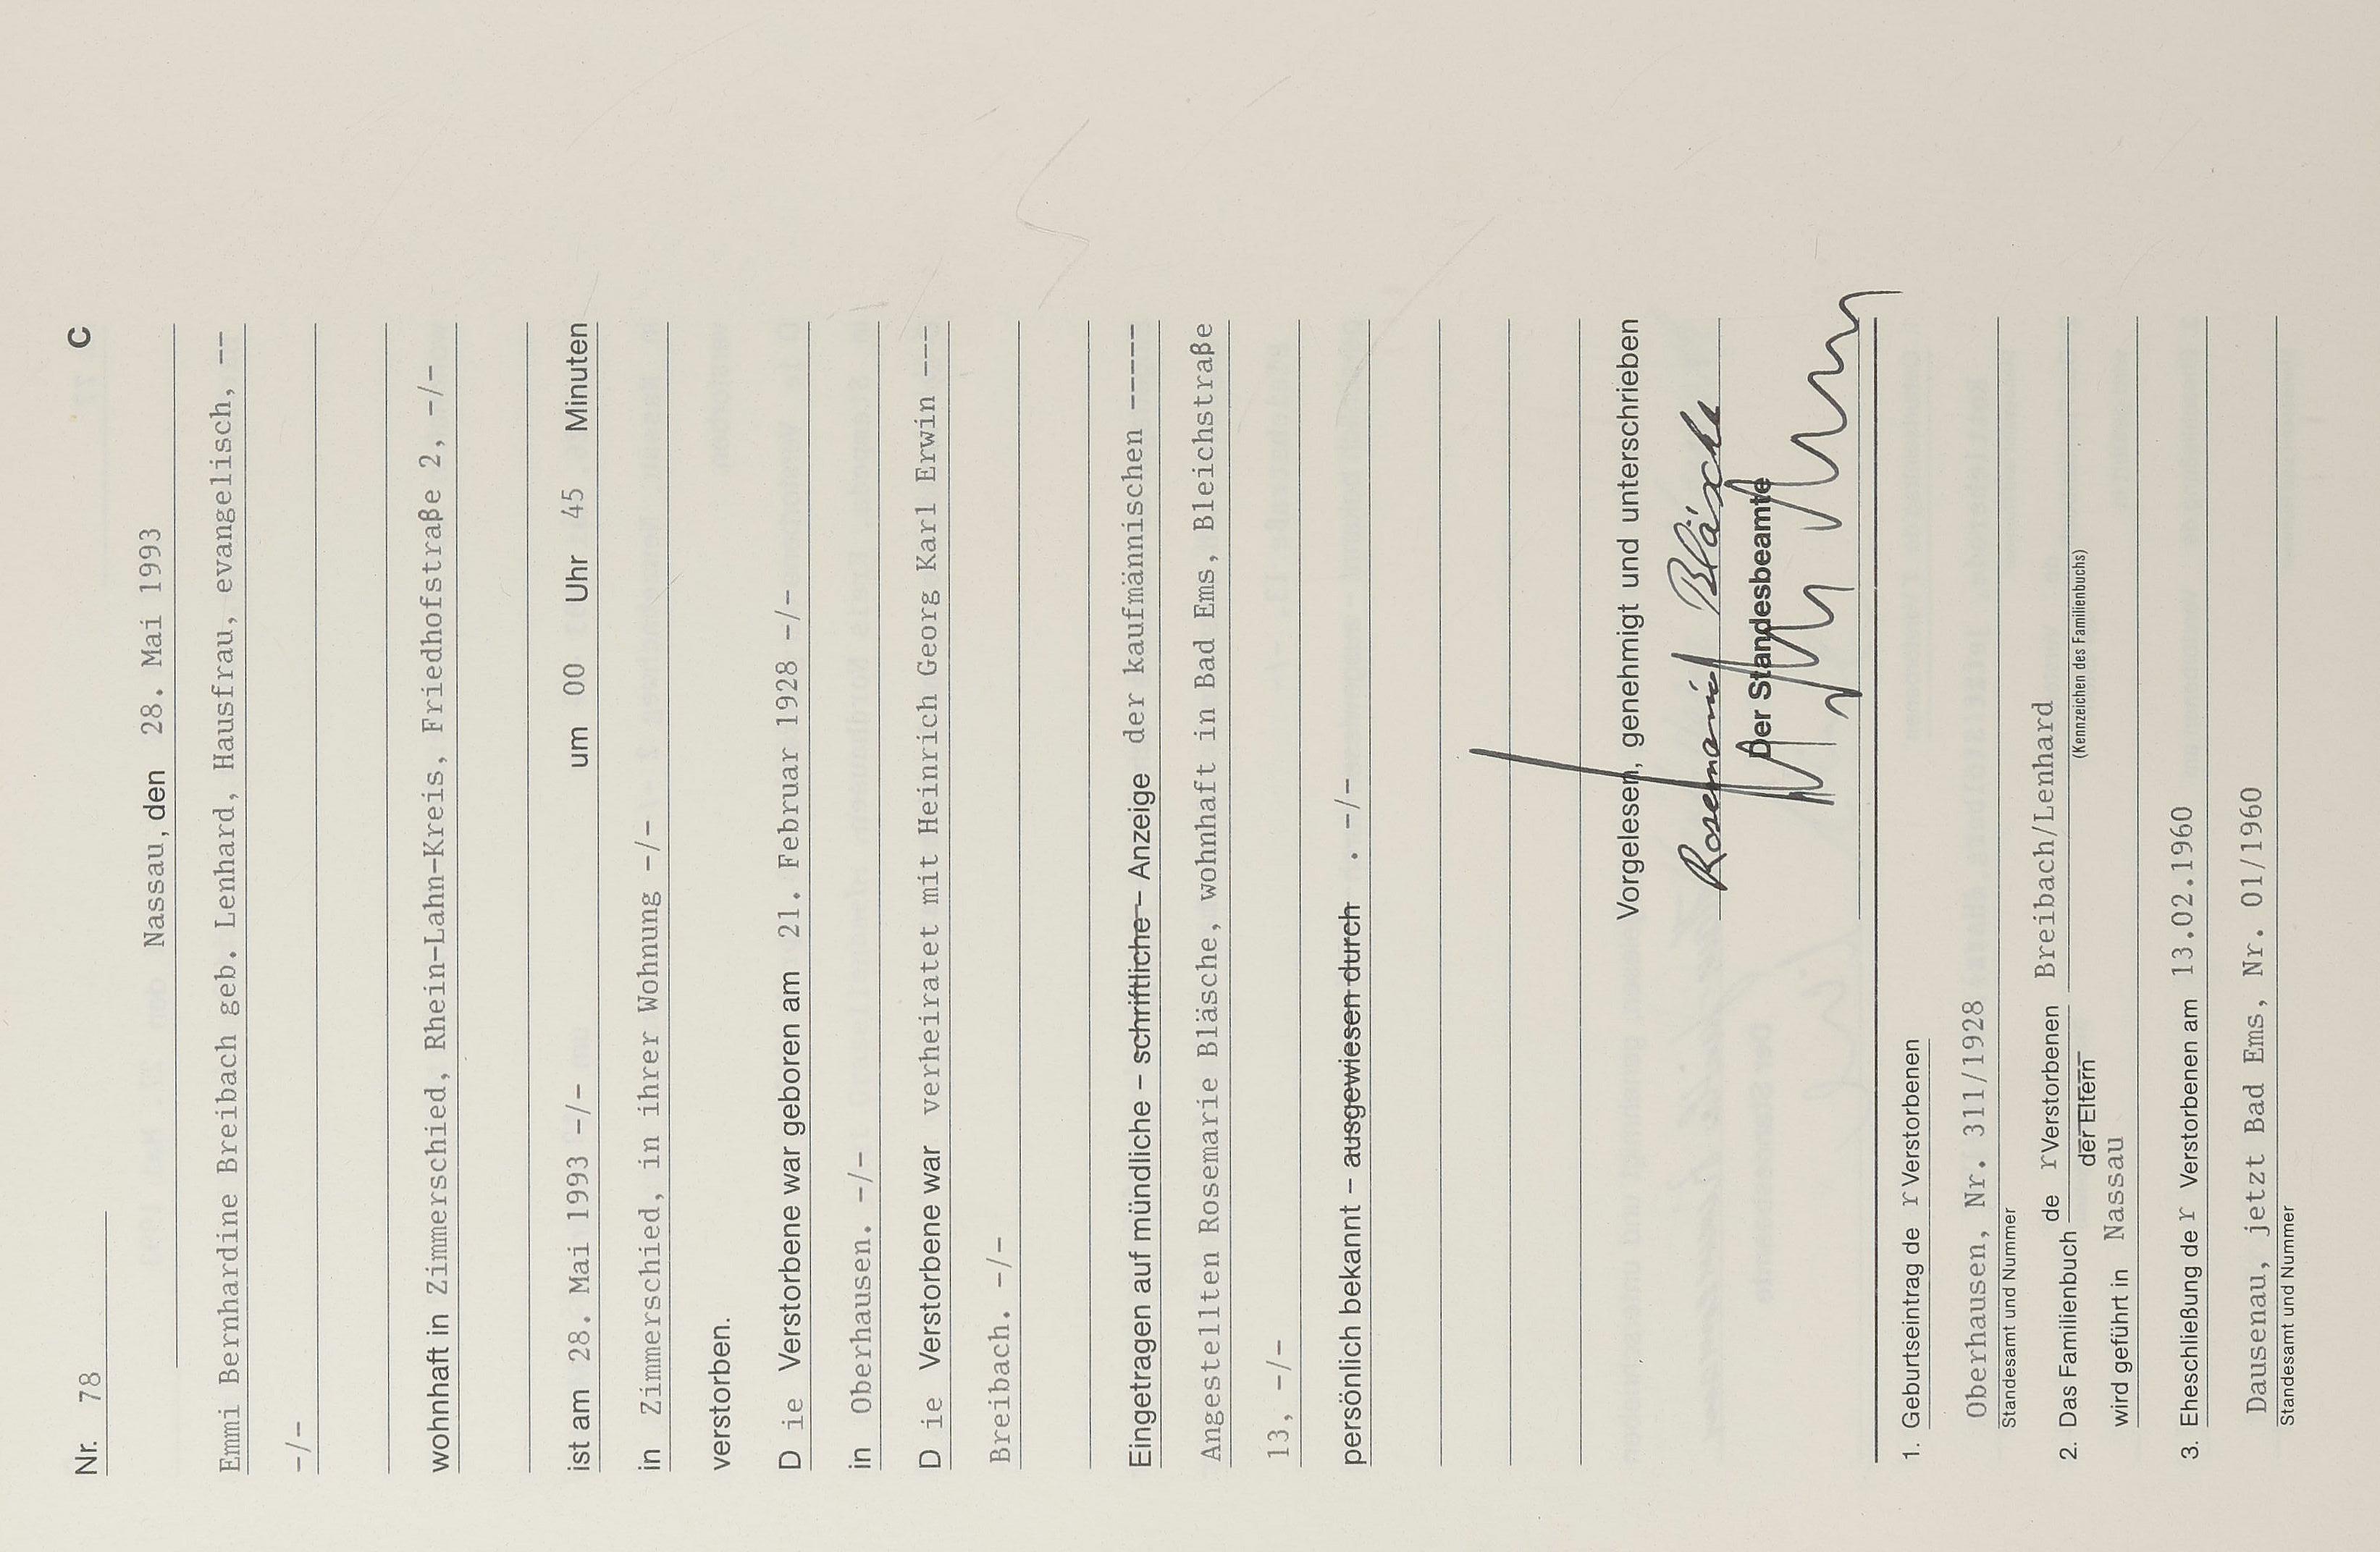 Nr. 78 C
Nassau, den 28. Mai 1993
Emmi Bernhardine Breibach geb. Lenhard, Hausfrau, evangelisch, --
-/-
wohnhaft in Zimmerschied, Rhein-Lahn-Kreis, Friedhofstraße 2, -/-
ist am 28. Mai 1993 -/- um 00 Uhr 45 Minuten
in Zimmerschied, in ihrer Wohnung -/-
verstorben.
D ie Verstorbene war geboren am 21. Februar 1928 -/-
in Oberhausen. -/-
D ie Verstorbene war verheiratet mit Heinrich Georg Karl Erwin ---
Breibach. -/-
Eingetragen auf mündliche – schriftliche – Anzeige der kaufmännischen -----
Angestellten Rosemarie Bläsche, wohnhaft in Bad Ems, Bleichstraße
13, -/-
persönlich bekannt – ausgewiesen durch . -/-
Vorgelesen, genehmigt und unterschrieben
Rosemarie Bläsche
Der Standesbeamte
1. Geburtseintrag de r Verstorbenen
Oberhausen, Nr. 311/1928
Standesamt und Nummer
2. Das Familienbuch de r Verstorbenen Breibach/Lenhard
der Eltern (Kennzeichen des Familienbuchs)
wird geführt in Nassau
3. Eheschließung de r Verstorbenen am 13.02.1960
Dausenau, jetzt Bad Ems, Nr. 01/1960
Standesamt und Nummer